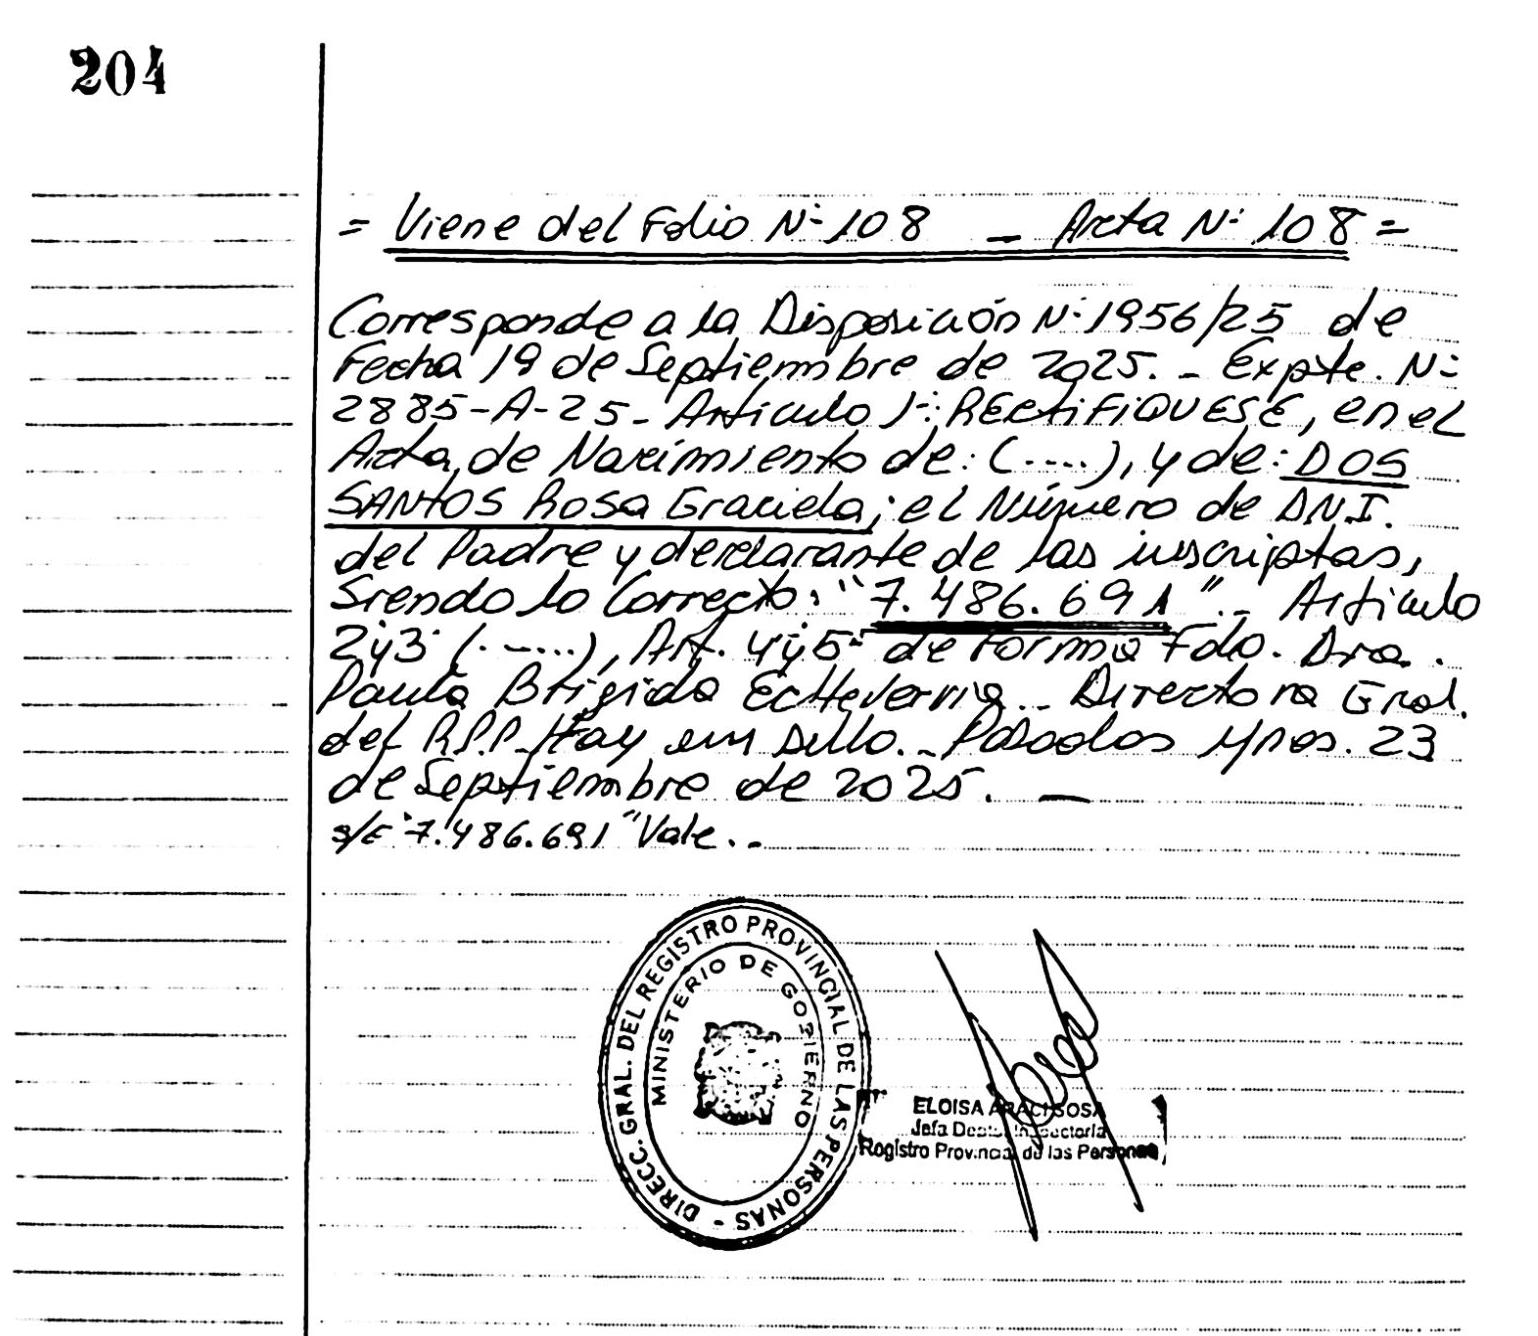 204
= Viene del Folio Nº 108 _ Acta Nº 108 =
Corresponde a la Disposición Nº 1956/25 de
Fecha 19 de Septiembre de 2025. - Expte. Nº
2885-A-25- Artículo 1º: RECTIFIQUESE, en el
Acta, de Nacimiento de: (....), y de: DOS
SANTOS Rosa Graciela; el Número de D.N.I.
del Padre y declarante de las inscriptas,
Siendo lo Correcto: "7.486.691". - Artículo
2y3 (.-....), Art. 4y5º de Forma Fdo. Dra.
Paula Brigida Echeverria - Directora Gral.
del R.P.P. Hay un sello. - Posadas Mnes. 23
de Septiembre de 2025. —
s/E "7.486.691" Vale. -
DIRECC. GRAL. DEL REGISTRO PROVINCIAL DE LAS PERSONAS -
MINISTERIO DE GOBIERNO
ELOISA ARACI SOSA
Jefa Depto. Inspectoría
Registro Provincial de las Personas